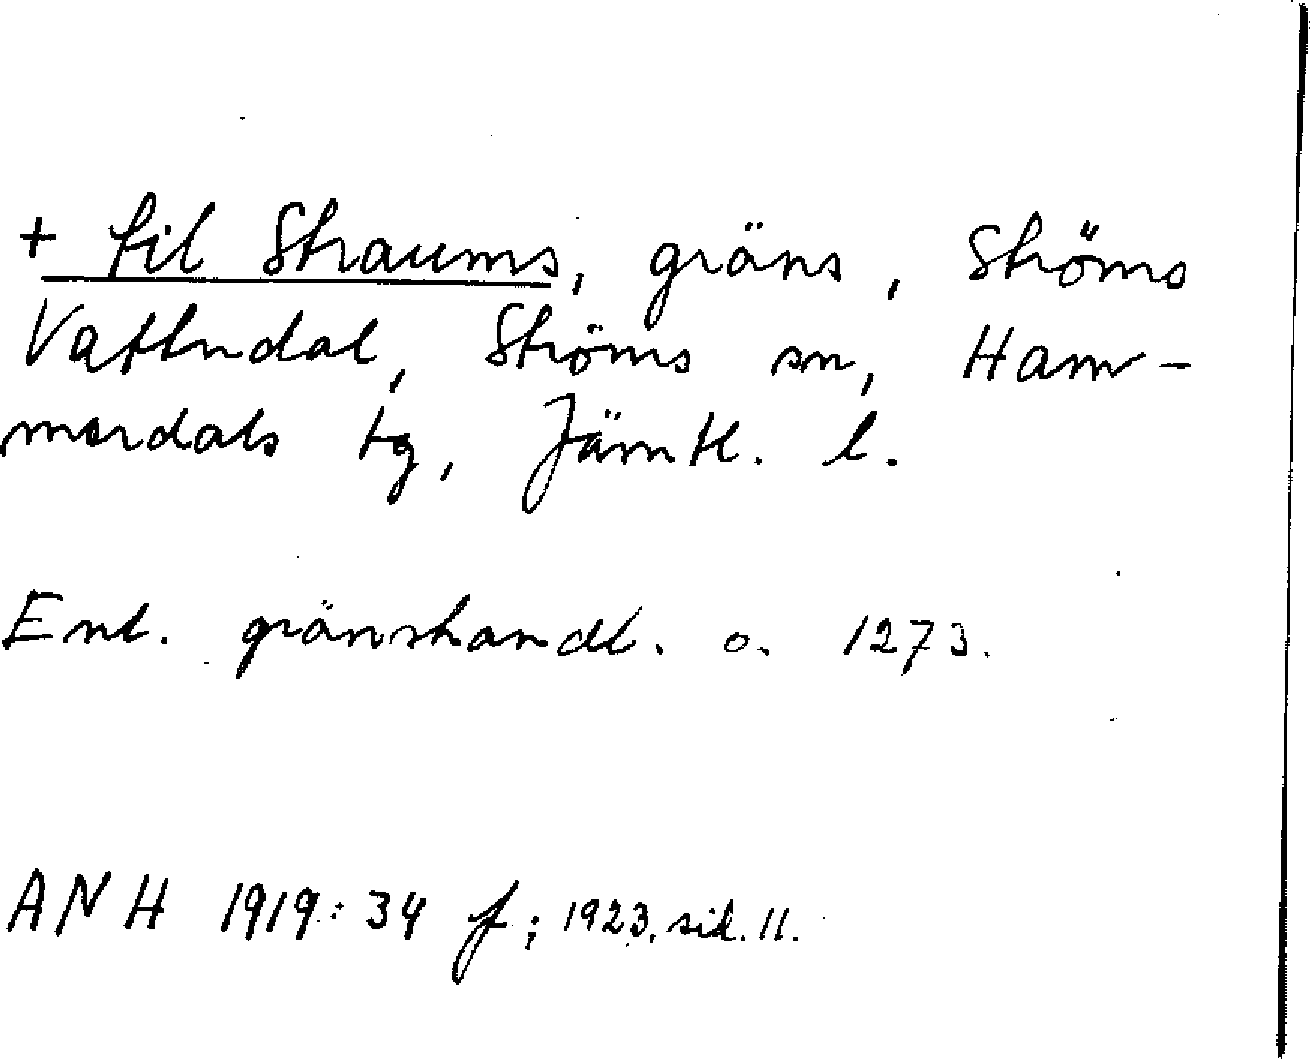 + til Straums, gräns, Ströms
Vattudal, Ströms sn, Ham-
merdals tg, Jämtl. l.
Enl. gränshandl. o. 1273.
ANH 1919:34 f; 1923, sid. 11.